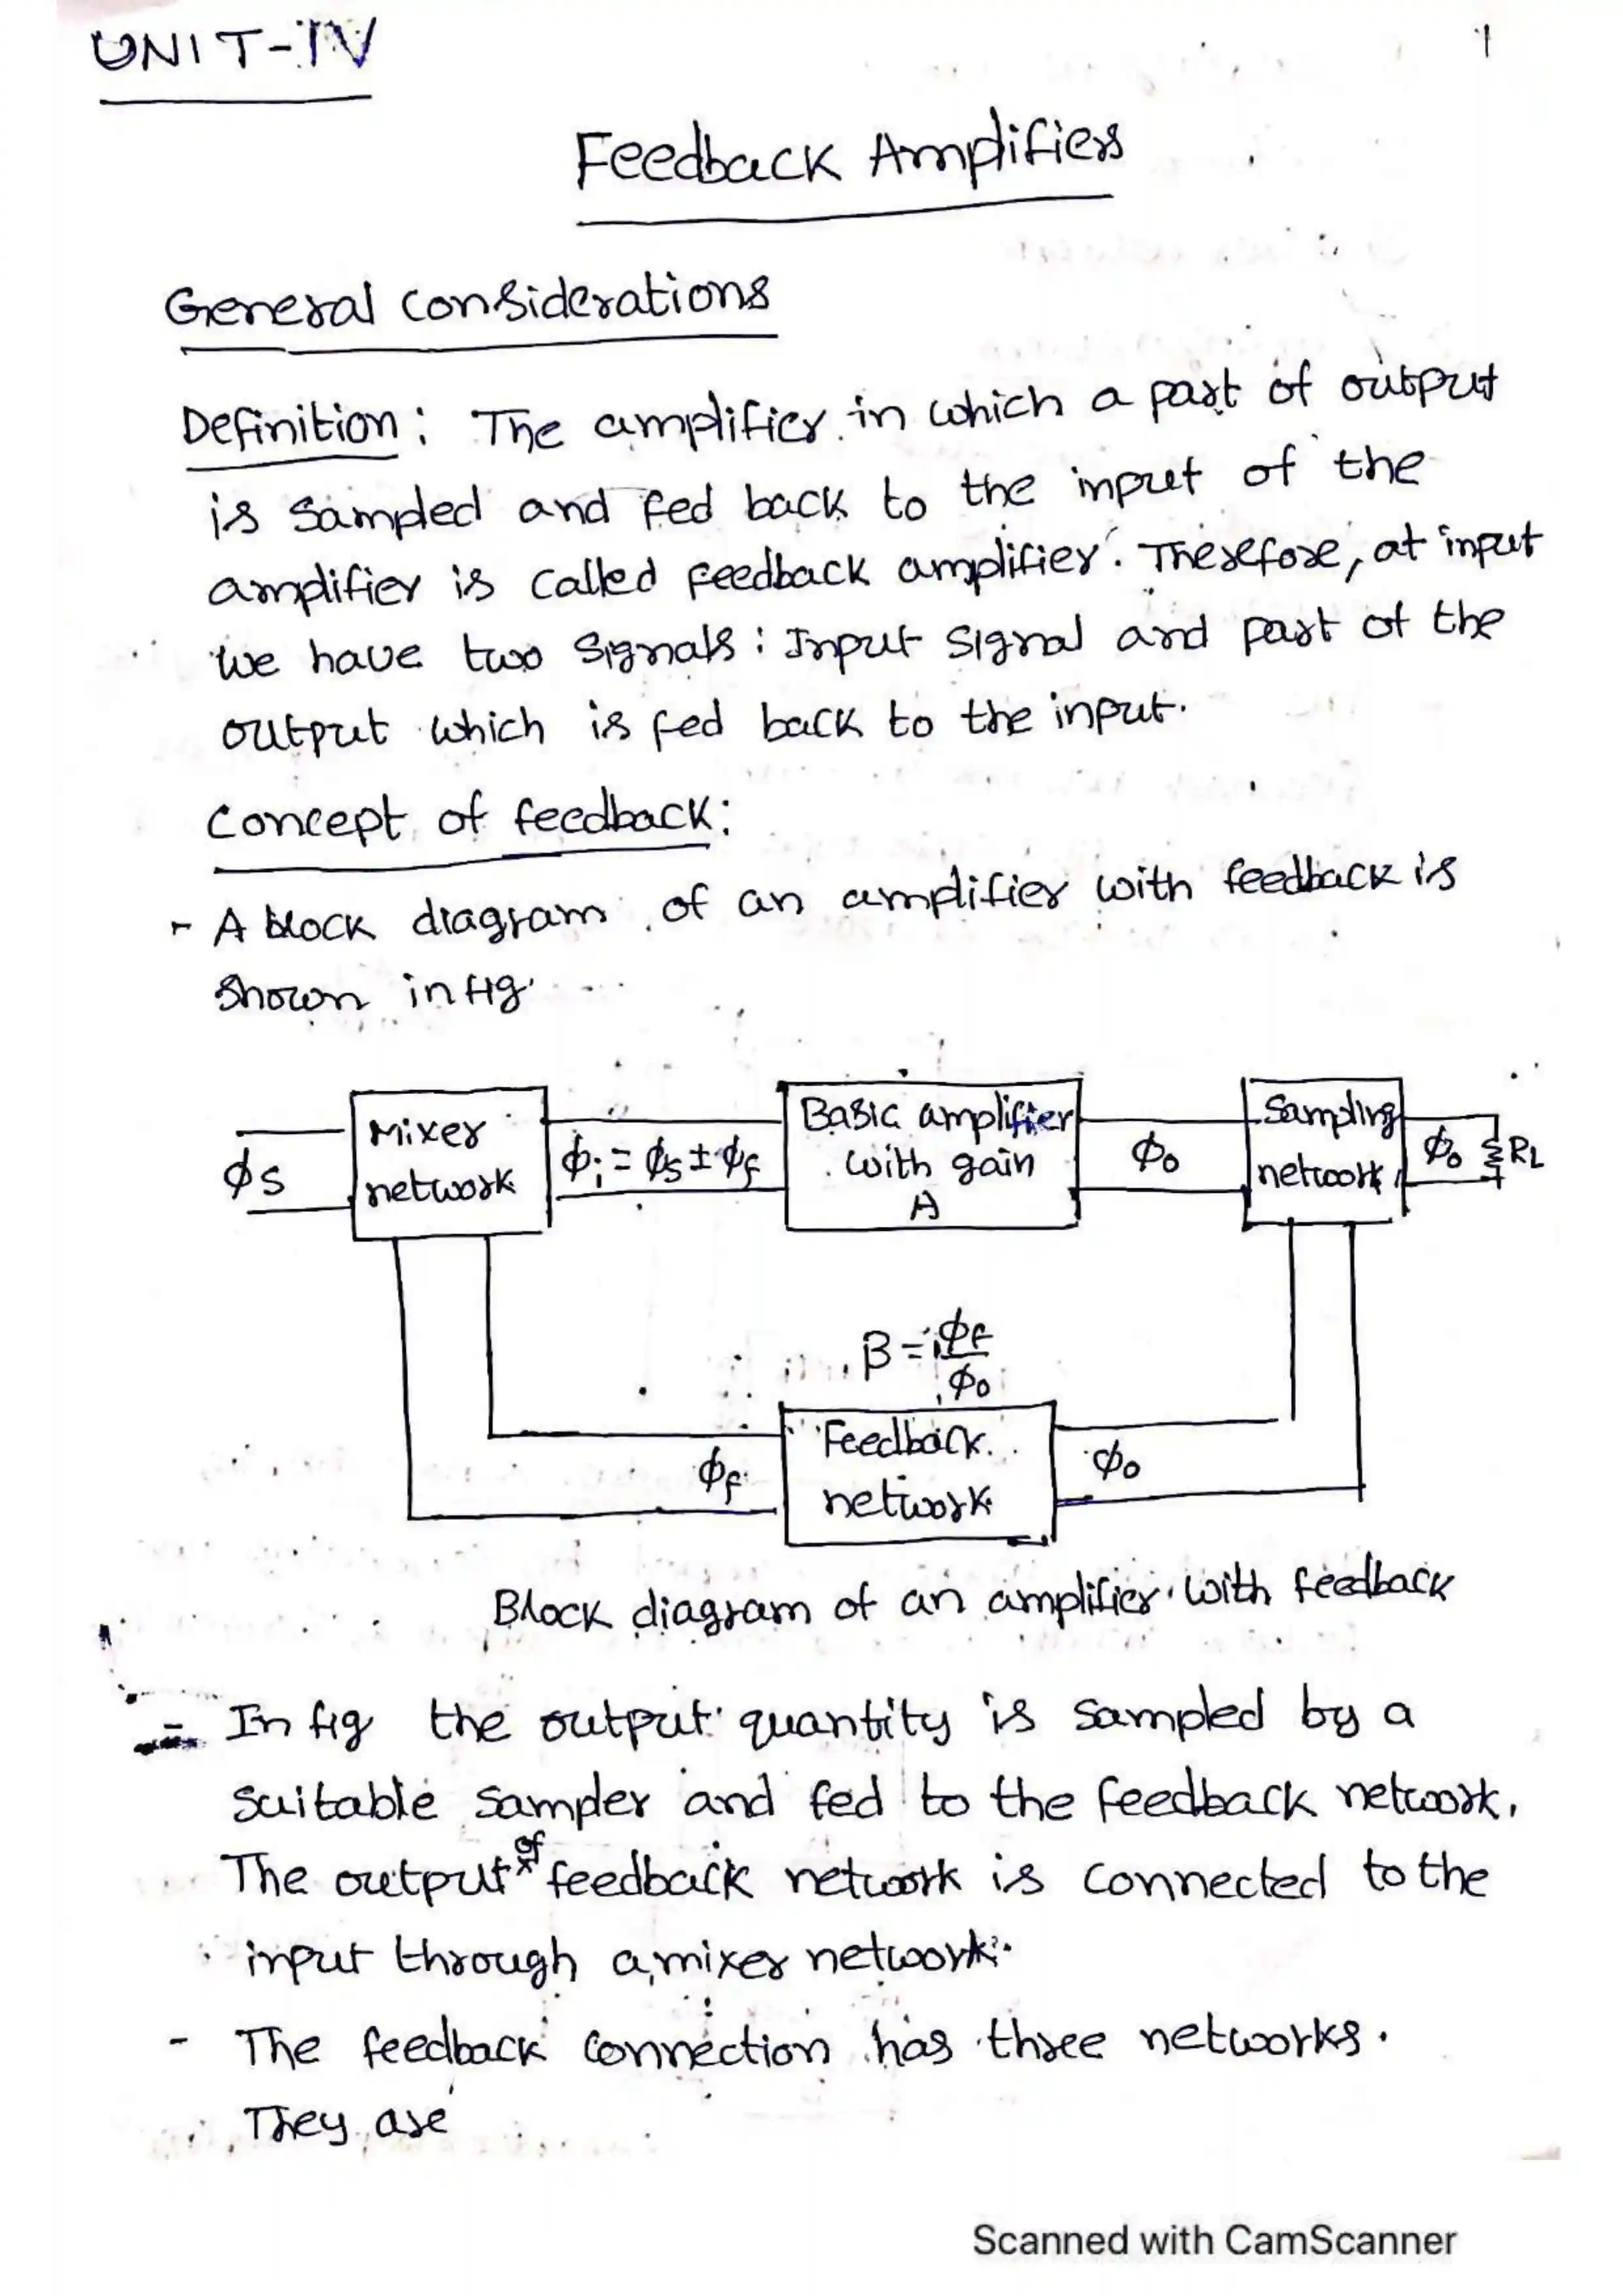 UNIT-IV
1
Feedback Amplifiers
General Considerations
Definition: The amplifier in which a part of output
is sampled and fed back to the input of the
amplifier is called feedback amplifier. Therefore, at input
we have two signals: Input signal and part of the
output which is fed back to the input.
Concept of feedback:
- A block diagram of an amplifier with feedback is
shown in fig.
ϕs
Mixer
network
ϕi = ϕs ± ϕf
Basic amplifier
with gain
A
ϕo
Sampling
network
ϕo
RL
β = ϕf/ϕo
ϕf
Feedback
network
ϕo
Block diagram of an amplifier with feedback
- In fig the output quantity is sampled by a
suitable sampler and fed to the feedback network.
The output of feedback network is connected to the
input through a mixer network.
- The feedback connection has three networks.
They are
Scanned with CamScanner